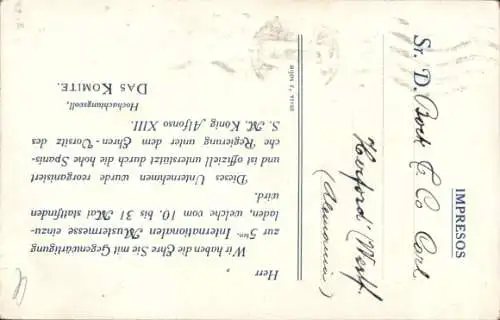 Herr ,
Wir haben die Ehre Sie mit Gegenwärtigen
zur 5ten Internationalen Mustermesse einzu-
laden, welche vom 10. bis 31 Mai stattfinden
wird.
Dieses Unternehmen wurde reorganisiert
und ist offiziell unterstützt durch die hohe Spanis-
che Regierung unter dem Ehren-Vorsitz des
S. M. König Alfonso XIII.
Hochachtungsvoll,
DAS KOMITE.
IMPRESOS
Sr. D. Bock & Co Carl
Herford (Westf.
(Alemania)